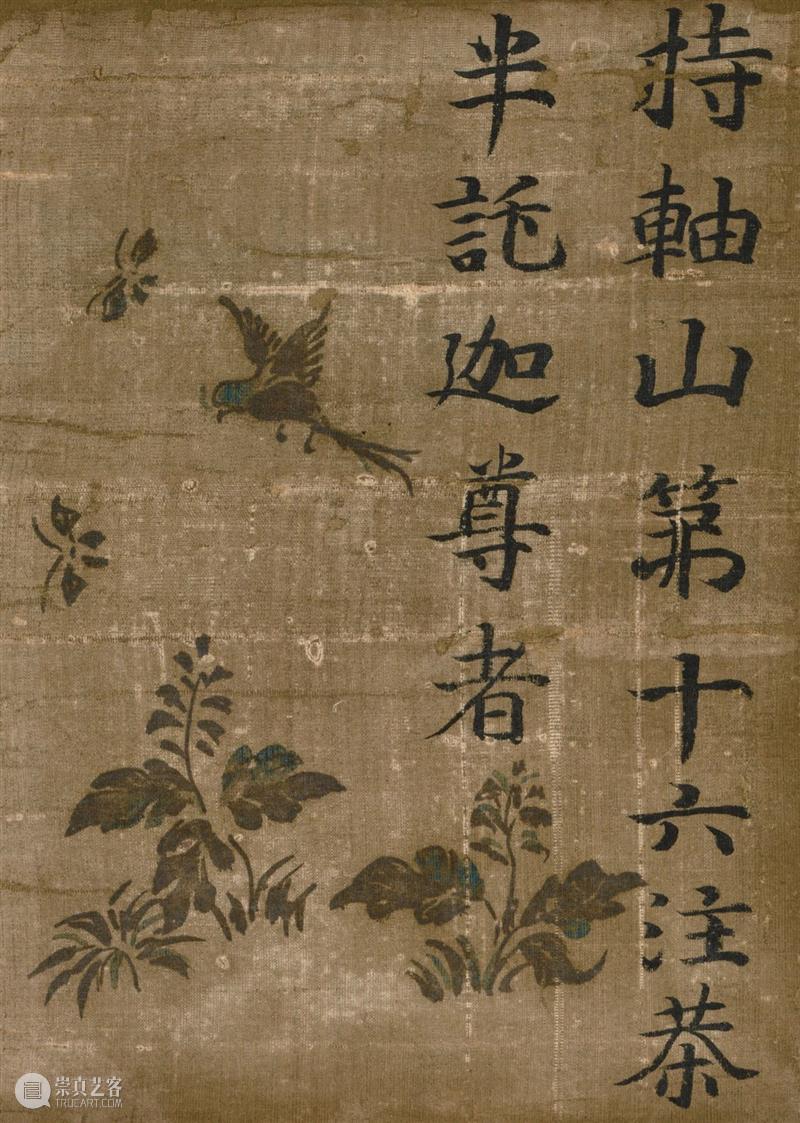 持軸山第十六注茶
半託迦尊者
崇真艺客
TRUEART.COM